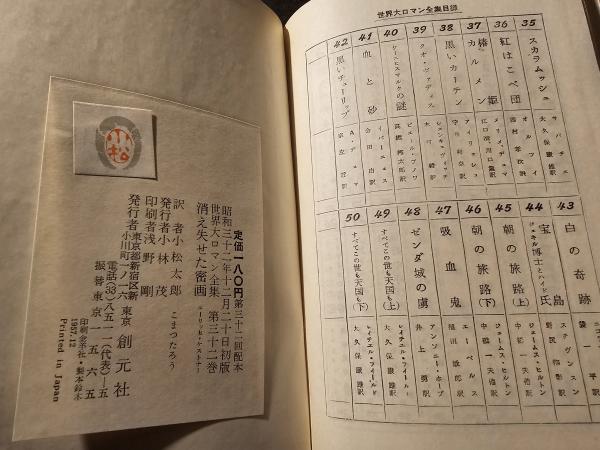 世界大ロマン全集目録
35
スカラムッシュ
サバチニ
大久保康雄訳
36
紅はこべ団
オルツイ
西村孝次訳
37
椿姫
カルメン
デュマ
メリメ
38
黒いカーテン
アイリッシュ
宇野利泰訳
39
クオ・ヴァディス
シェンキェヴィッチ
40
ケーニヒスマルクの謎
ピエール・ブノワ
41
血と砂
イバーニェス
会田由訳
42
黒いチューリップ
A・デュマ
宗左近訳
43
白の奇跡
44
宝島
ジェキル博士とハイド氏
スティヴンスン
45
朝の旅路(上)
ジェームス・ヒルトン
中橋一夫訳
46
朝の旅路(下)
ジェームス・ヒルトン
中橋一夫訳
47
吸血鬼
エーベルス
植田敏郎訳
48
ゼンダ城の虜
アンソニー・ホープ
井上勇訳
49
すべてこの世も天国も(上)
レイチェル・フィールド
大久保康雄訳
50
すべてこの世も天国も(下)
レイチェル・フィールド
大久保康雄訳
小松
定価一八〇円 第三十二回配本
昭和三十二年十二月二十日初版
世界大ロマン全集 第三十二巻
消え失せた密画
エーリッヒ・ケストナー
訳者 小松太郎 こまつたろう
発行者 小林茂
印刷者 浅野剛
発行者 東京都新宿区新小川町一ノ一六 東京創元社
電話(33)八五一一(代表)―五
振替東京 一五六五
印刷 金羊社・製本 鈴木
1957.12
Printed in Japan